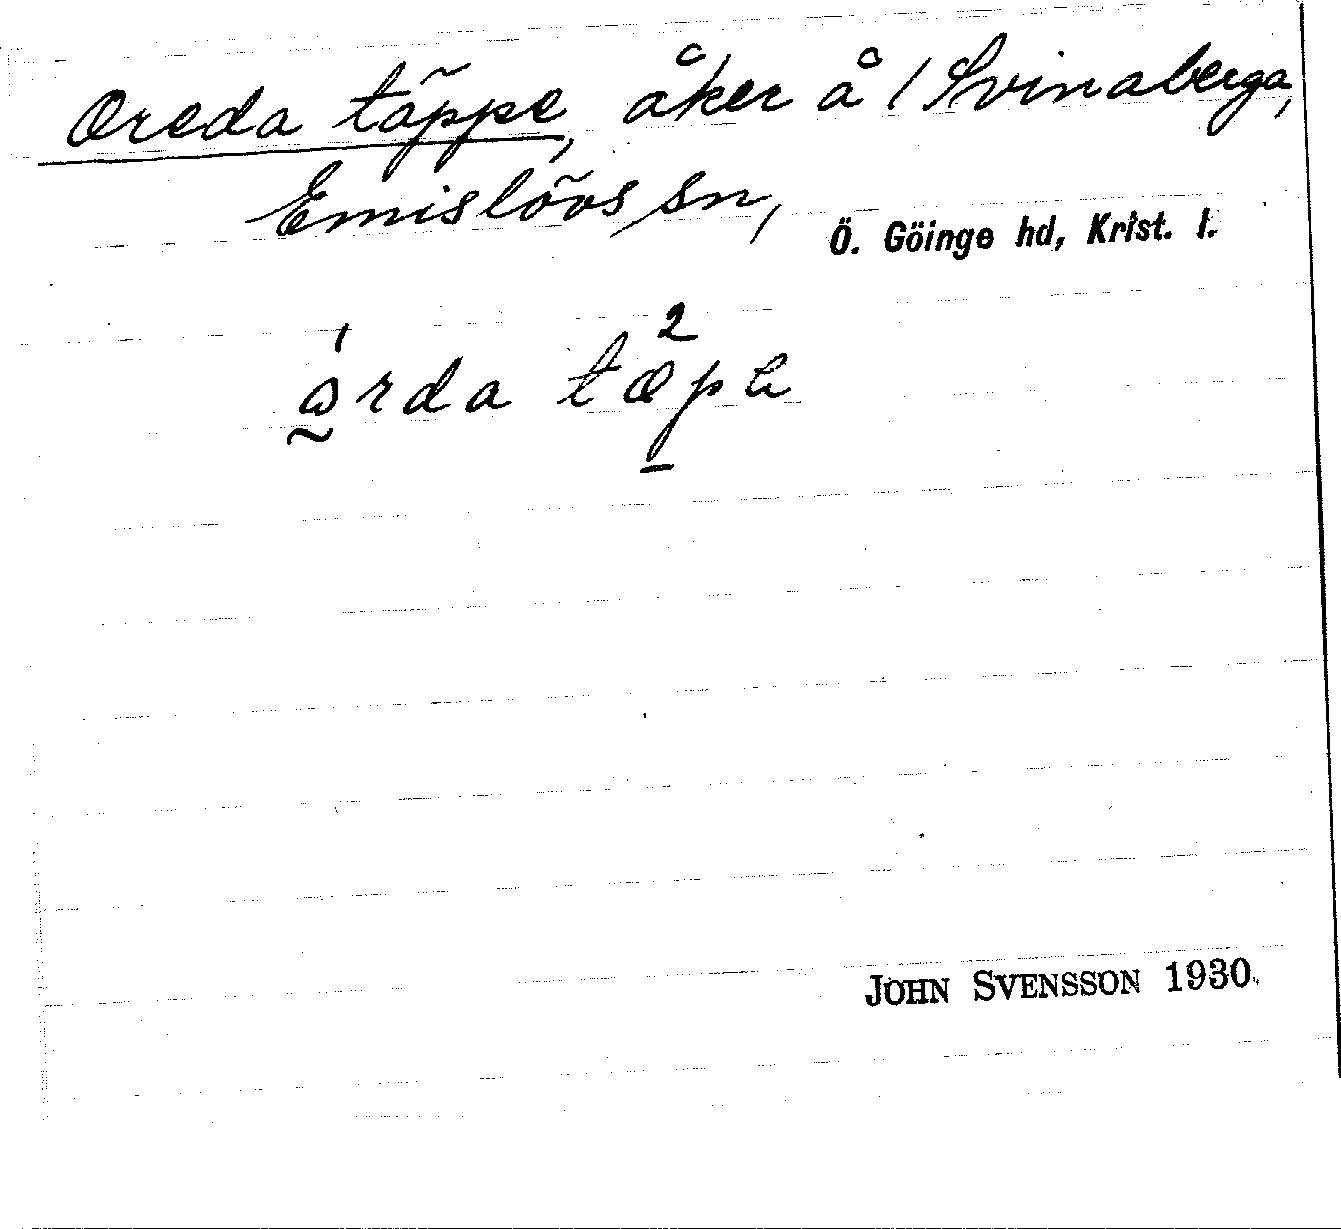 Oreda täppe, åker å /Svinaberga,
Emislövs sn,
Ö. Göinge hd, Krist. l.
1 2
årda tæpa
JOHN SVENSSON 1930.